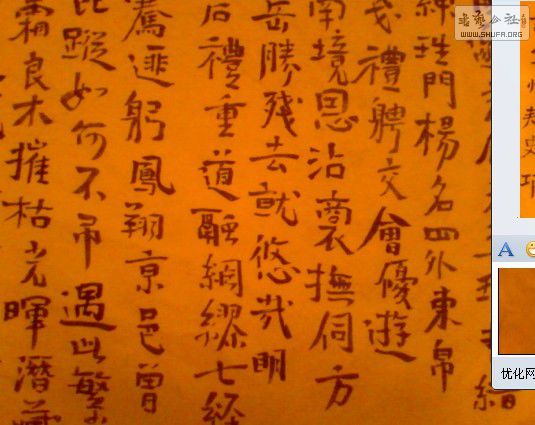 書藝公社
WWW.SHUFA.ORG
珪門楊名四外東帛
戔禮聘交會優遊
南境恩沾裔撫伺方
岳勝殘去就悠哉明
后禮重道融綢繆七經
騫躬鳳翔京邑曾
比蹤如何不弔遇此繁
霜良木摧枯光暉潛
夷
史
巧
A
优化网